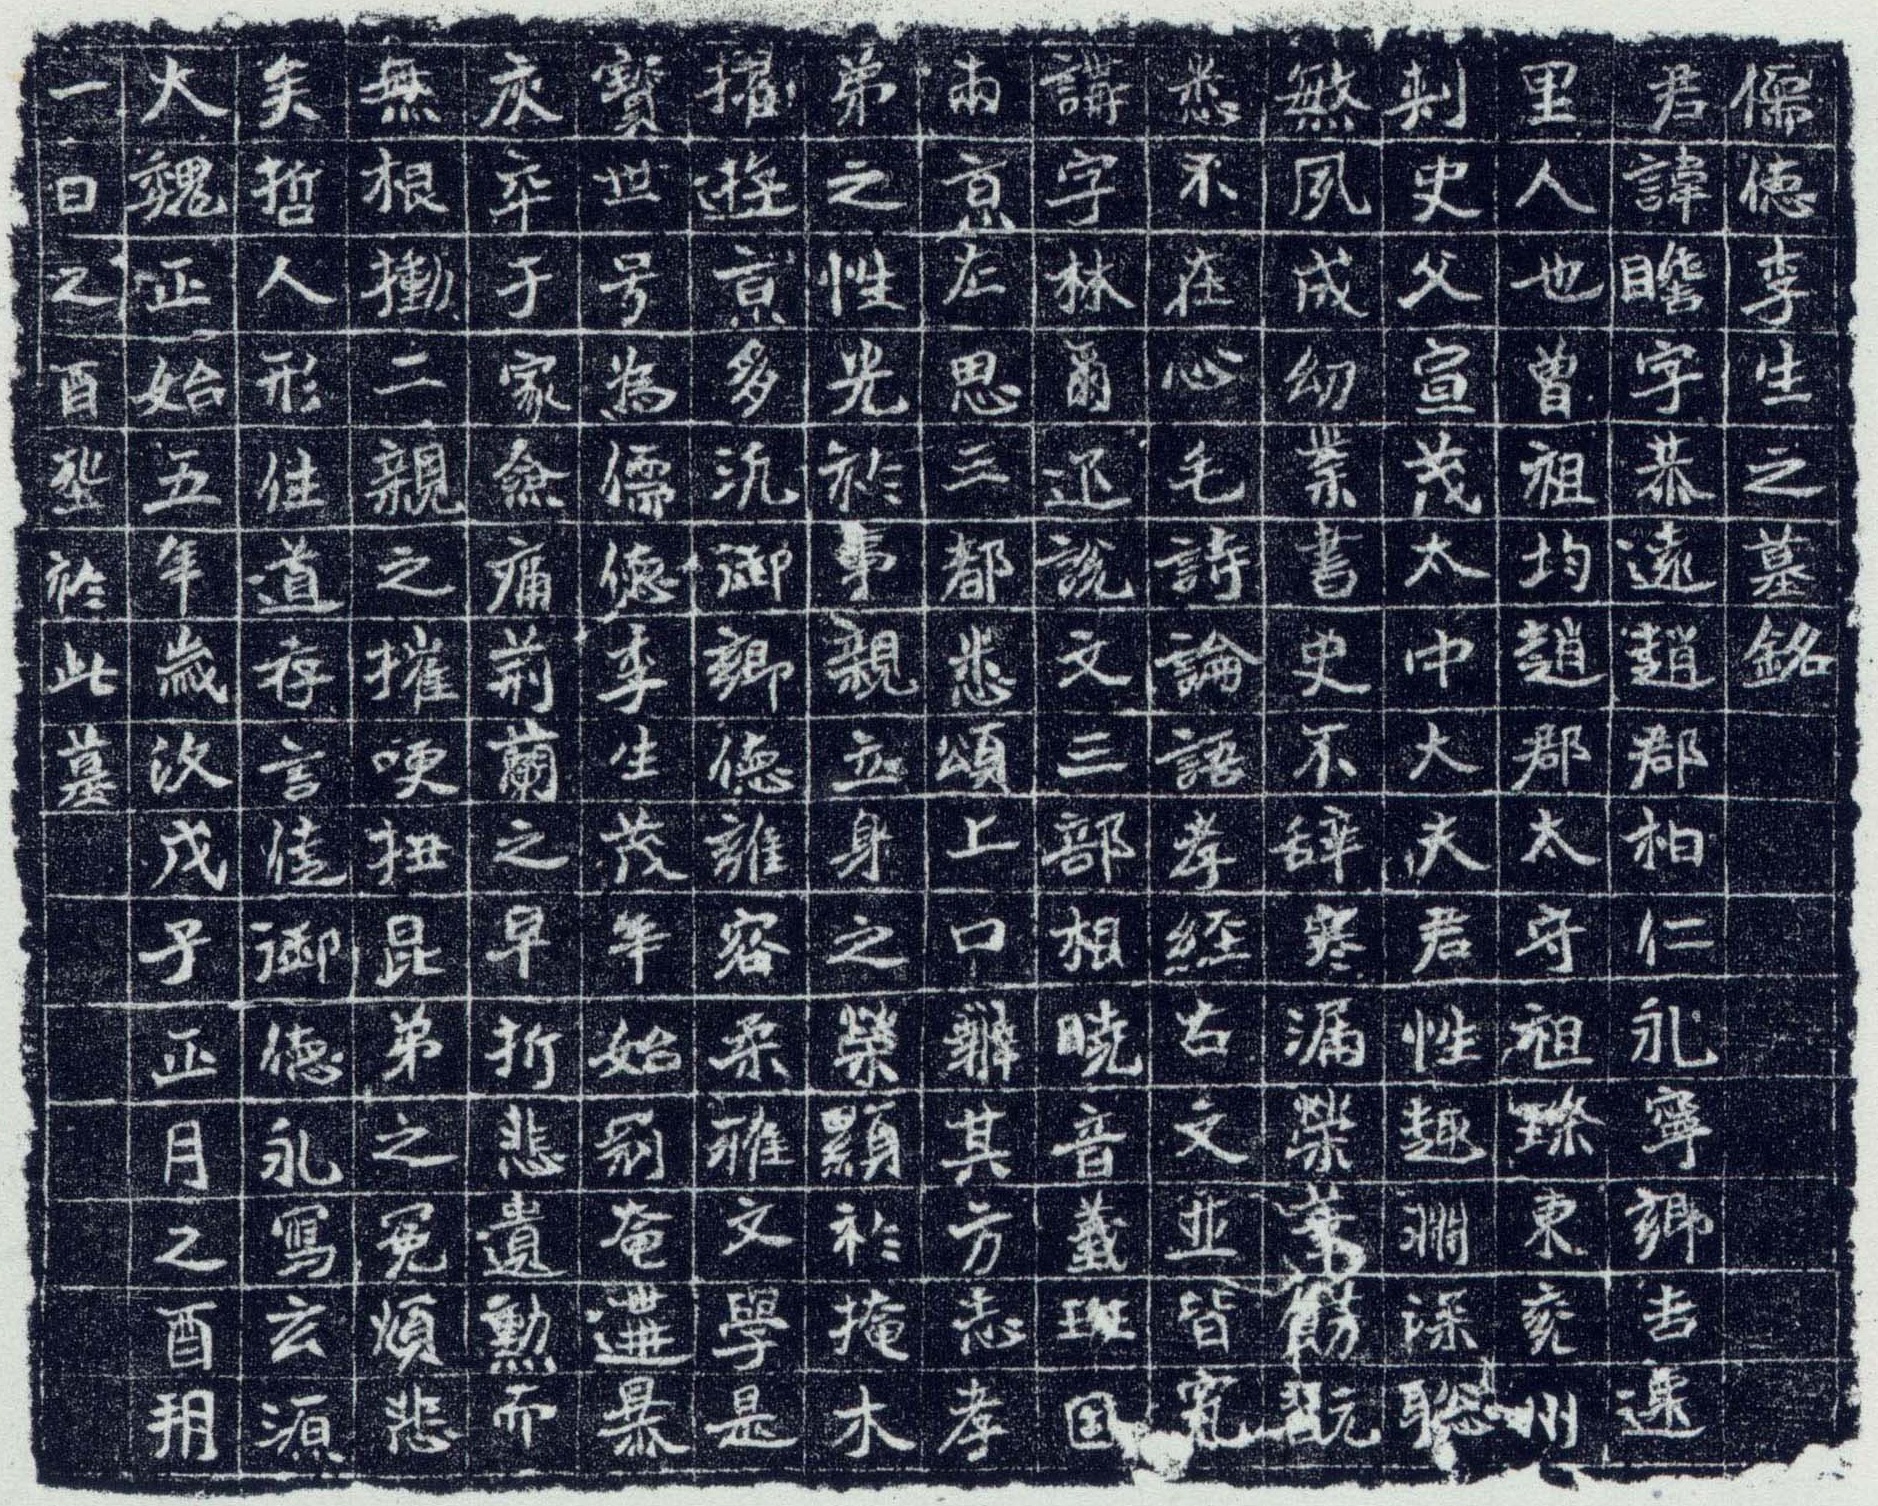 儒德李生之墓銘
君諱瞻字恭遠趙郡柏仁永寧鄉吉遷
里人也曾祖均趙郡太守祖璨東兖州
刾史父宣茂太中大夫君性趣淵深聡
慜夙成幼業書史不辞寒漏榮葉飭翫
悉不在心毛詩論語孝経古文並皆究
講字林爾迩說文三部相曉音義班固
兩京左思三都悉頌上口辭其方志孝
弟之性光於事親立身之榮顯於掩木
擢遊京多沇御鄉德雍容柔雅文學是
寶世号為儒德李生茂年始剏奄遘暴
疾卒于家僉痛荊蘭之早折悲遺勲而
無根慟二親之摧哽扭昆弟之冤煩悲
矣哲人形往道存言御德永寫玄源
大魏正始五年歲次戊子正月之酉朔
一日之酉埊於此墓